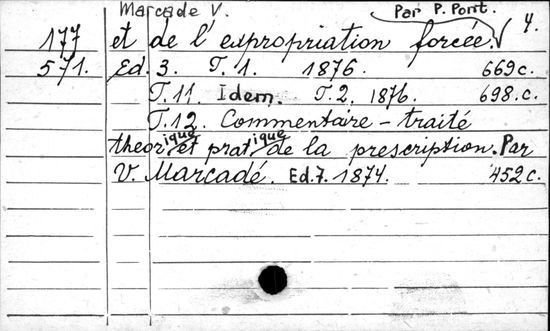 Marcade V. Par P. Pont. 4.
177 et de l'expropriation forcée.
571. Ed. 3. T. 1. 1876. 669 c.
T. 11. Idem. T. 2. 1876. 698. c.
T. 12. Commentaire - traité
theorique et pratique de la prescription. Par
V. Marcadé. Ed. 7. 1874. 452 c.